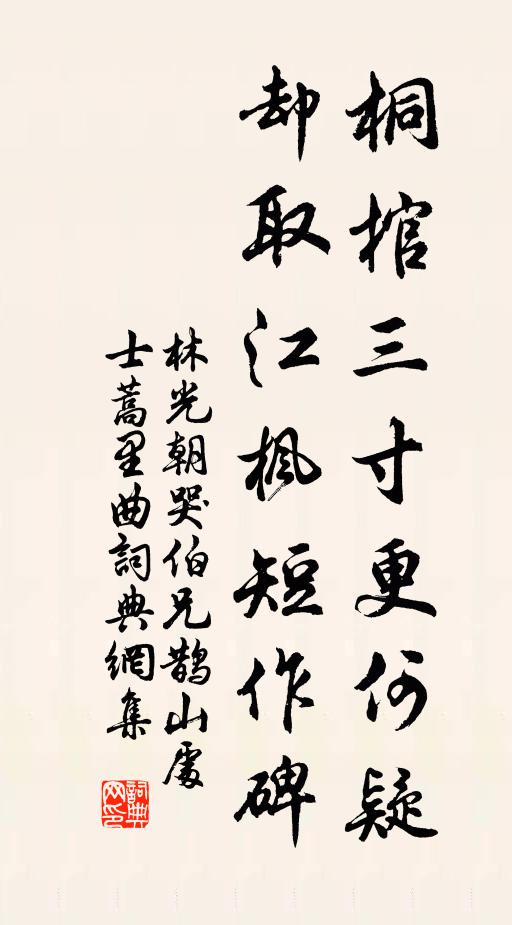 桐棺三寸更何疑
却取江楓短作碑
林光朝哭伯兄鹊山處
士蒿里曲詞典網集
詞典
网印